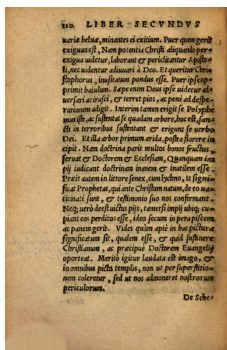 110. LIBER SECVNDVS
varia belua, minantes ei exitium. Puer quem gerit
exiguus est, Nam potentia Christi aliquando per-
exigua uidetur, laborant & periclitantur Aposto
li, nec uidentur adiuuari à Deo. Et queritur Chri
stophorus, inusitatum pondus esse. Puer ipse op
primit baiulum. Saepe enim Deus ipse uidetur ad
uersari & irasci, & terret pios, ac penè ad despe-
rationem adigit. Interim tamen erigit se Polyphe
mus iste, ac sustentat se quadam arbore, hoc est, san
cti in terroribus sustentant & erigunt se uerbo
Dei. Et illa arbor primum arida, postea florere in
cipit. Nam doctrina parit multos bonos fructus
seruat & Doctorem & Ecclesiam, Quanquam im
pij iudicant doctrinam inanem & inutilem esse.
Praeit autem in littore senex, cum lychno, is signi
ficat Prophetas, qui ante Christum natum, de eo ua
ticinati sunt, & testimonio suo nos confirmant.
Neq; uerò deest uictus pijs, tametsi impij ubiq; cu
piant eos perditos esse, ideo secum in pera piscem
ac panem gerit. Vides quàm aptè in hac pictura
significatum sit, qualem esse, & quid sustinere
Christianum, ac praecipuè Doctorem Euangelij
oporteat. Meritò igitur laudata est imago, &
in omnibus picta templis, non ut per superstitio-
nem coleretur, sed ut nos admoneret nostrorum
periculorum.
De Sche-